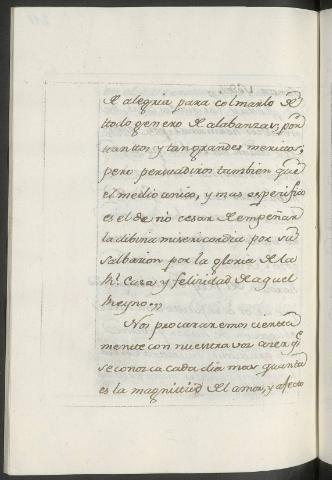 de alegria para colmarlo de
ttodo genero de alabanzas, por
tanttos y tan grandes meritos,
pero persuadiros tambien que
el medio unico, y mas expesifico
es el de no cesar de empeñar
la dibina misericordia por su
salbazion por la gloria de la
Rl. Casa, y felisidad de aquel
Reyno.
Nos procuraremos ciertta
mente con nuestra voz a
se conozca cada dia mas quanta
es la magnittud del amor, y afecto